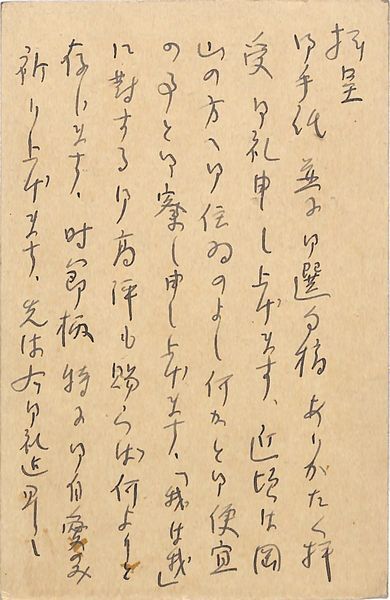 拝呈
御手紙並に御選句稿ありがたく拝
受御礼申し上げます、近頃は岡
山の方へ御住ゐのよし何かと御便宜
の事と御察し申し上げます、「我は我」
に対する御高評も賜らば何よりと
存じます、時節柄特に御自愛のみ
祈り上げます、先は右御礼迄 早々